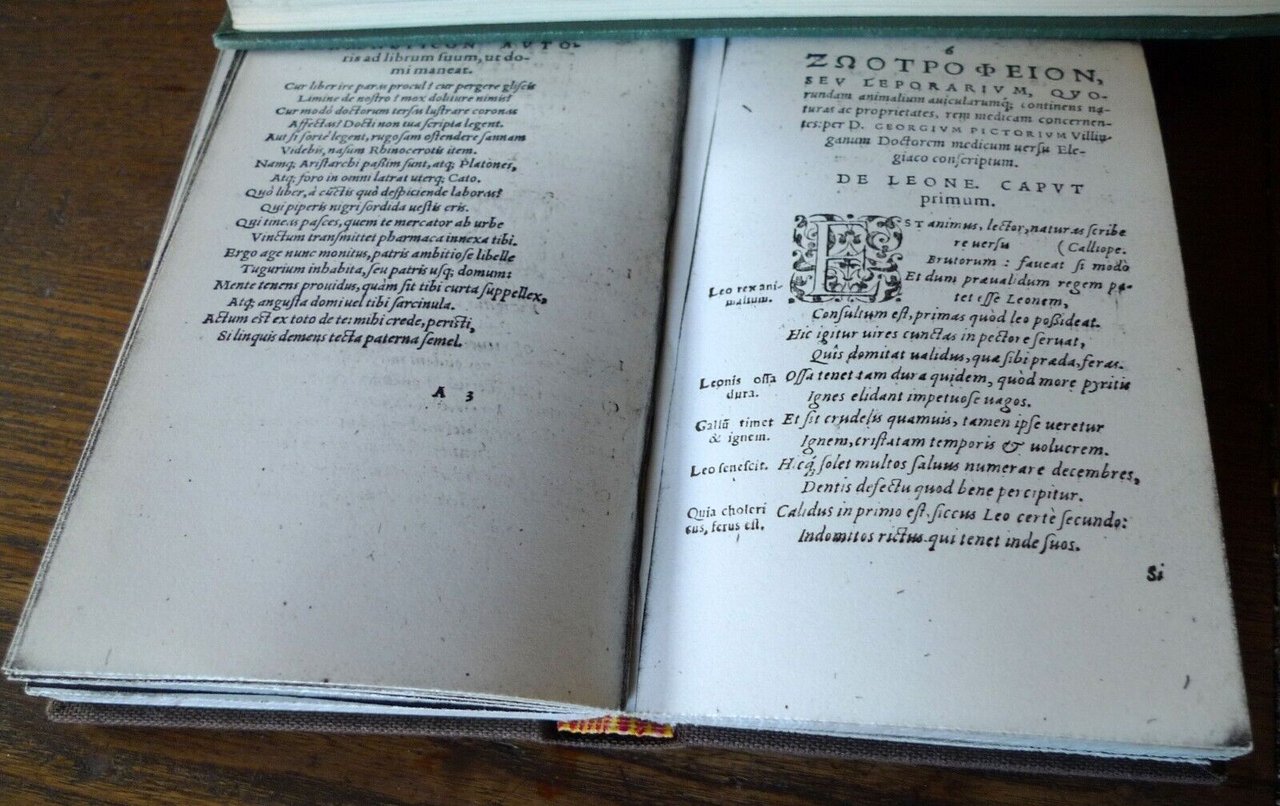 AVTO-
ris ad librum suum, ut do-
mi maneat.
Cur liber ire paras procul? cur pergere gliscis
Limine de nostro? mox dobiture nimis?
Cur modò doctorum tersus lustrare coronas
Affectas? Docti non tua scripta legent.
Aut si fortè legent, rugosam ostendere sannam
Videbis, nasum Rhinocerotis item.
Namq; Aristarchi passim sunt, atq; Platones,
Atq; foro in omni latrat uterq; Cato.
Quò liber, à cūctis quò despiciende laboras?
Qui piperis nigri sordida uestis eris.
Qui tineas pasces, quem te mercator ab urbe
Vinctum transmittet pharmaca innexa tibi.
Ergo age nunc monitus, patris ambitiose libelle
Tugurium inhabita, seu patris usq; domum:
Mente tenens prouidus, quàm sit tibi curta suppellex,
Atq; angusta domi uel tibi sarcinula.
Actum est ex toto de te: mihi crede, peristi,
Si linquis demens tecta paterna semel.
A 3
6
ΖΩΟΤΡΟΦΕΙΟΝ,
SEV LEPORARIVM, QVO-
rundam animalium auicularumq; continens na-
turas ac proprietates, rem medicam concernen-
tes: per D. GEORGIVM PICTORIVM Villin-
ganum Doctorem medicum uersu Ele-
giaco conscriptum.
DE LEONE. CAPVT
primum.
EST animus, lector, naturas scribe
re uersu (Calliope.
Brutorum: faueat si modò
Et dum præualidum regem pa-
tet esse Leonem,
Leo rex ani-
malium.
Consultum est, primas quòd leo possideat.
Hic igitur uires cunctas in pectore seruat,
Quis domitat ualidus, quæ sibi præda, feras.
Leonis ossa
dura.
Ossa tenet tam dura quidem, quòd more pyritis
Ignes elidant impetuose uagos.
Gallū timet
& ignem.
Et sit crudelis quamuis, tamen ipse ueretur
Ignem, cristatam temporis & uolucrem.
Leo senescit.
Hicq; solet multos saluus numerare decembres,
Dentis defectu quod bene percipitur.
Quia choleri
cus, ferus est.
Calidus in primo est, siccus Leo certè secundo:
Indomitos rictus qui tenet inde suos.
Si